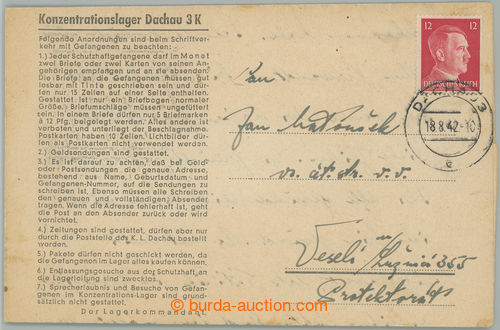 Konzentrationslager Dachau 3 K
Folgende Anordnungen sind beim Schriftver-
kehr mit Gefangenen zu beachten:
1.) Jeder Schutzhaftgefangene darf im Monat
zwei Briefe oder zwei Karten von seinen An-
gehörigen empfangen und an sie absenden.
Die Briefe an die Gefangenen müssen gut
lesbar mit Tinte geschrieben sein und dür-
fen nur 15 Zeilen auf einer Seite enthalten.
Gestattet ist nur ein Briefbogen normaler
Größe. Briefumschläge müssen ungefüttert
sein. In einem Briefe dürfen nur 5 Briefmarken
à 12 Pfg. beigelegt werden. Alles andere ist
verboten und unterliegt der Beschlagnahme.
Postkarten haben 10 Zeilen. Lichtbilder dür-
fen als Postkarten nicht verwendet werden.
2.) Geldsendungen sind gestattet.
3.) Es ist darauf zu achten, daß bei Geld-
oder Postsendungen die genaue Adresse,
bestehend aus Name, Geburtsdatum und
Gefangenen-Nummer, auf die Sendungen zu
schreiben ist. Ebenso müssen alle Schreiben
den genauen und vollständigen Absender
tragen. Wenn die Adresse fehlerhaft ist, geht
die Post an den Absender zurück oder wird
vernichtet.
4.) Zeitungen sind gestattet, dürfen aber nur
durch die Poststelle des K. L. Dachau bestellt
werden.
5.) Pakete dürfen nicht geschickt werden, da
die Gefangenen im Lager alles kaufen können.
6.) Entlassungsgesuche aus der Schutzhaft an
die Lagerleitung sind zwecklos.
7.) Sprecherlaubnis und Besuche von Gefan-
genen im Konzentrations-Lager sind grund-
sätzlich nicht gestattet.
Der Lagerkommandant.
12 12
DEUTSCHES REICH
18.8.42-10
e
Pan
Jan
Veselí 355
Protektorat
burda-auction.com